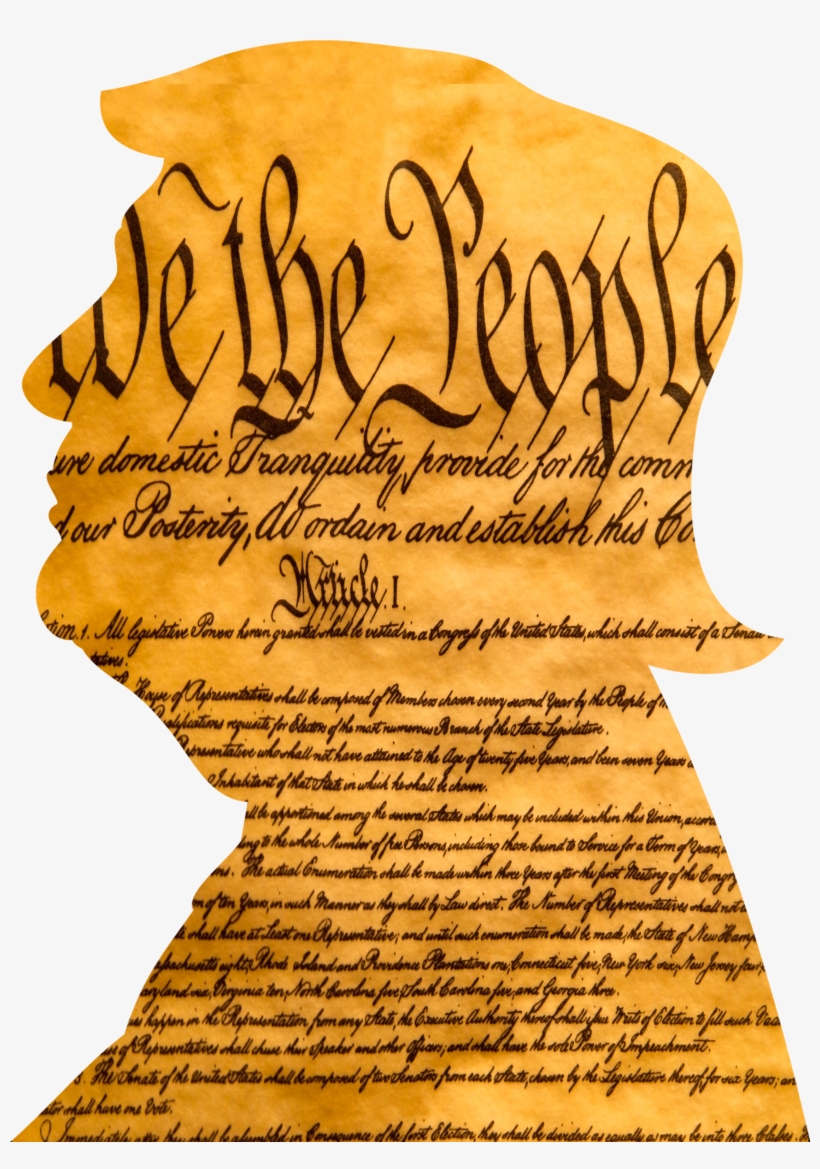 We the People
ure domestic Tranquility, provide for the comm
d our Posterity, do ordain and establish this Co
Article. I.
ction. 1. All legislative Powers herein granted shall be vested in a Congress of the United States, which shall consist of a Senate
tatives.
House of Representatives shall be composed of Members chosen every second Year by the People of
Qualifications requisite for Electors of the most numerous Branch of the State Legislature.
Representative who shall not have attained to the Age of twenty five Years, and been seven Years
Inhabitant of that State in which he shall be chosen.
all be apportioned among the several States which may be included within this Union, accor
ing to the whole Number of free Persons, including those bound to Service for a Term of Years,
ns. The actual Enumeration shall be made within three Years after the first Meeting of the Congr
m of ten Years, in such Manner as they shall by Law direct. The Number of Representatives shall not
shall have at Least one Representative; and until such enumeration shall be made, the State of New Hamp
ssachusetts eight, Rhode Island and Providence Plantations one, Connecticut five, New York six, New Jersey four,
aryland six, Virginia ten, North Carolina five, South Carolina five, and Georgia three.
es happen in the Representation from any State, the Executive Authority thereof shall issue Writs of Election to fill such Vaca
se of Representatives shall chuse their Speaker and other Officers; and shall have the sole Power of Impeachment.
3. The Senate of the United States shall be composed of two Senators from each State, chosen by the Legislature thereof, for six Years; an
ator shall have one Vote.
Immediately after they shall be assembled in Consequence of the first Election, they shall be divided as equally as may be into three Classes.